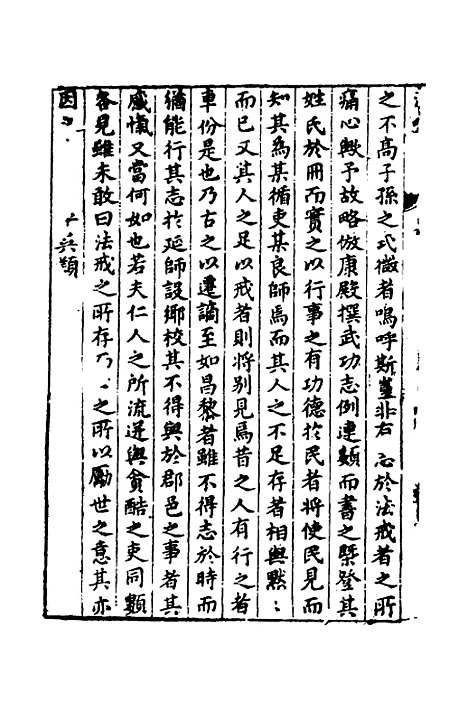 之不髙子孫之式微者嗚呼斯豈非有心於法戒者之所
痛心歟予故略倣康殿撰武功志例連類而書之槩登其
姓氏於冊而實之以行事之有功德於民者將使民見而
知其為某循吏某良師焉而其人之不足存者相與黙:
而已又其人之足以戒者則將别見焉昔之人有行之者
車份是也乃古之以遷謫至如昌黎者雖不得志於時而
猶能行其志於延師設鄉校其不得與於郡邑之事者其
感愾又當何如也若夫仁人之所流迸與貪酷之吏同類
各見雖未敢曰法戒之所存乃之所以勵世之意其亦
因
兵類